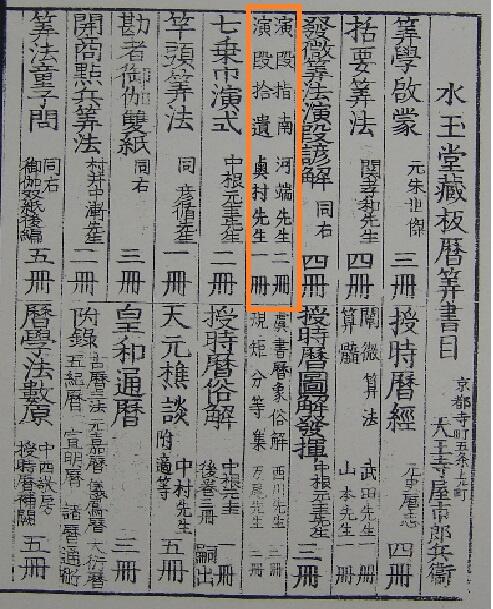 水玉堂藏板暦筭書目
京都寺町五条上町
天王寺屋市郎兵衛
筭學啟蒙 元朱世傑 三冊
授時暦經 元史暦志 四冊
括要筭法 関孝和先生 四冊
闡微算法 武田先生 一冊
算髓 山本先生 一冊
發微筭法演段諺解 同右 四冊
授時暦圖解發揮 中根元圭先生 三冊
演段指南 河端先生 二冊
演段拾遺 奥村先生 一冊
書暦象俗解 西川先生 二冊
規矩分等集 万尾先生 二冊
七乗冪演式 中根元圭先生 二冊
授時暦俗解 中根先生 一冊
後巻三冊 嗣出
竿頭筭法 同 彦循先生 一冊
天元樵談 中村先生 五冊
附適等
勘者御伽雙紙 同右 三冊
皇和通暦 三冊
開商點兵筭法 村井中漸先生 二冊
附錄 古暦之法 元嘉暦 儀鳳暦 大衍暦
五紀暦 宣明暦 諸暦通術
筭法童子問 同右 御伽双紙後編 五冊
暦學法數原 中西敬房 授時暦補闕 五冊